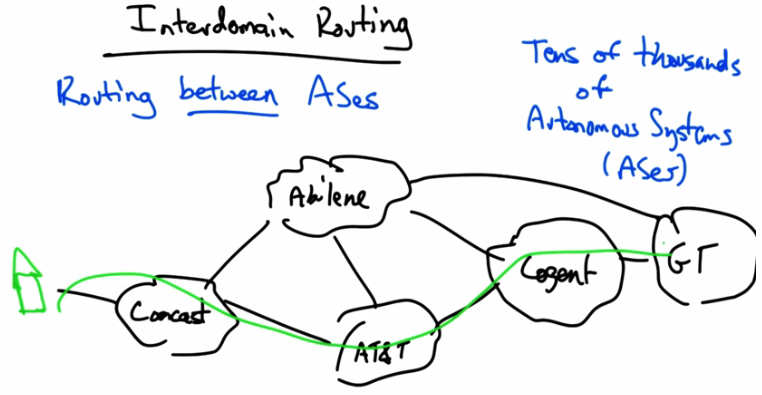 Interdomain Routing
Routing between ASes
Tens of thousands
of
Autonomous Systems
(ASes)
Abilene
Cogent
GT
Comcast
AT&T